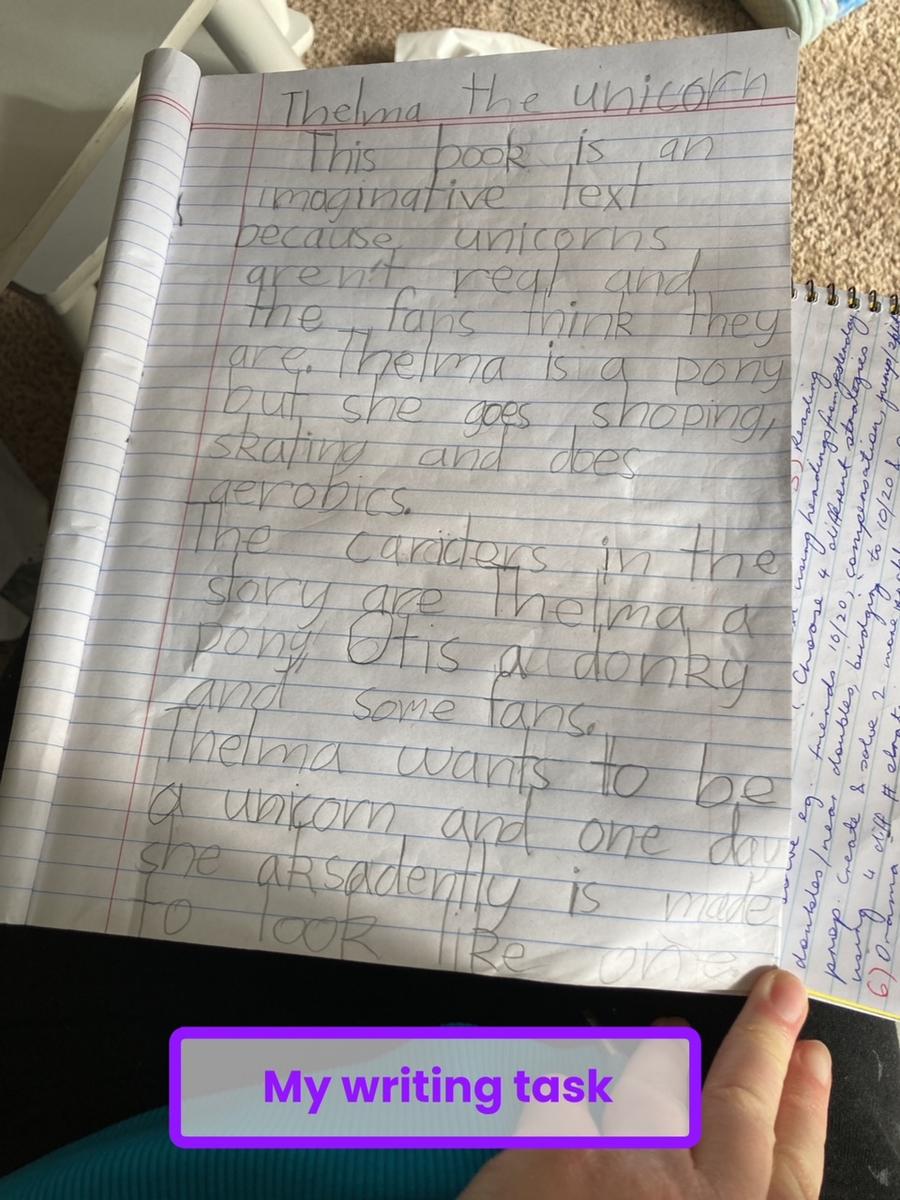 Thelma the unicorn
This book is an
imaginative text
because unicorns
aren't real and
the fans think they
are. Thelma is a pony
but she goes shoping,
skating and does
aerobics.
The caracters in the
story are Thelma a
pony, Otis a donky
and some fans.
Thelma wants to be
a unicorn and one day
she aksadently is made
to look like one
reading
using headings from yesterday
Choose 4 different strategies
eg. friends 10/20, compensation,
doubles/near doubles, bridging to 10/20
prep. Create & solve 2 more
using 4 diff #
6) Drama
My writing task